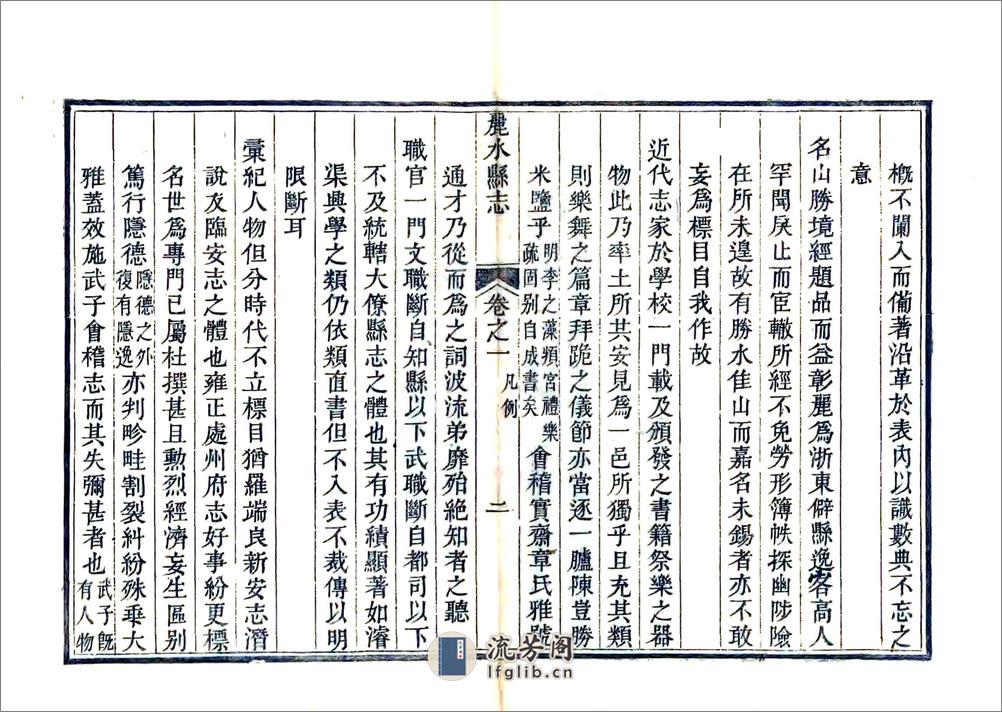 概不闌入而備著沿革於表內以識數典不忘之
意
名山勝境經題品而益彰麗爲浙東僻縣逸客高人
罕聞戾止而宦轍所經不免勞形簿帙探幽陟險
在所未遑故有勝水佳山而嘉名未錫者亦不敢
妄爲標目自我作故
近代志家於學校一門載及頒發之書籍祭樂之器
物此乃率土所共安見爲一邑所獨乎且充其類
則樂舞之篇章拜跪之儀節亦當逐一臚陳豈勝
米鹽乎明李之藻頖宮禮樂疏固别自成書矣會稽實齋章氏雅號
麗水縣志 卷之一 凡例 二
通才乃從而爲之詞波流弟靡殆絶知者之聽
職官一門文職斷自知縣以下武職斷自都司以下
不及統轄大僚縣志之體也其有功績顯著如濬
渠興學之類仍依類直書但不入表不裁傳以明
限斷耳
彚紀人物但分時代不立標目猶羅端良新安志潛
說友臨安志之體也雍正處州府志好事紛更標
名世爲專門已屬杜撰甚且勲烈經濟妄生區别
篤行隱德隱德之外復有隱逸亦判畛畦割裂糾紛殊乖大
雅蓋效施武子會稽志而其失彌甚者也武子旣有人物
流芳阁
lfglib.cn